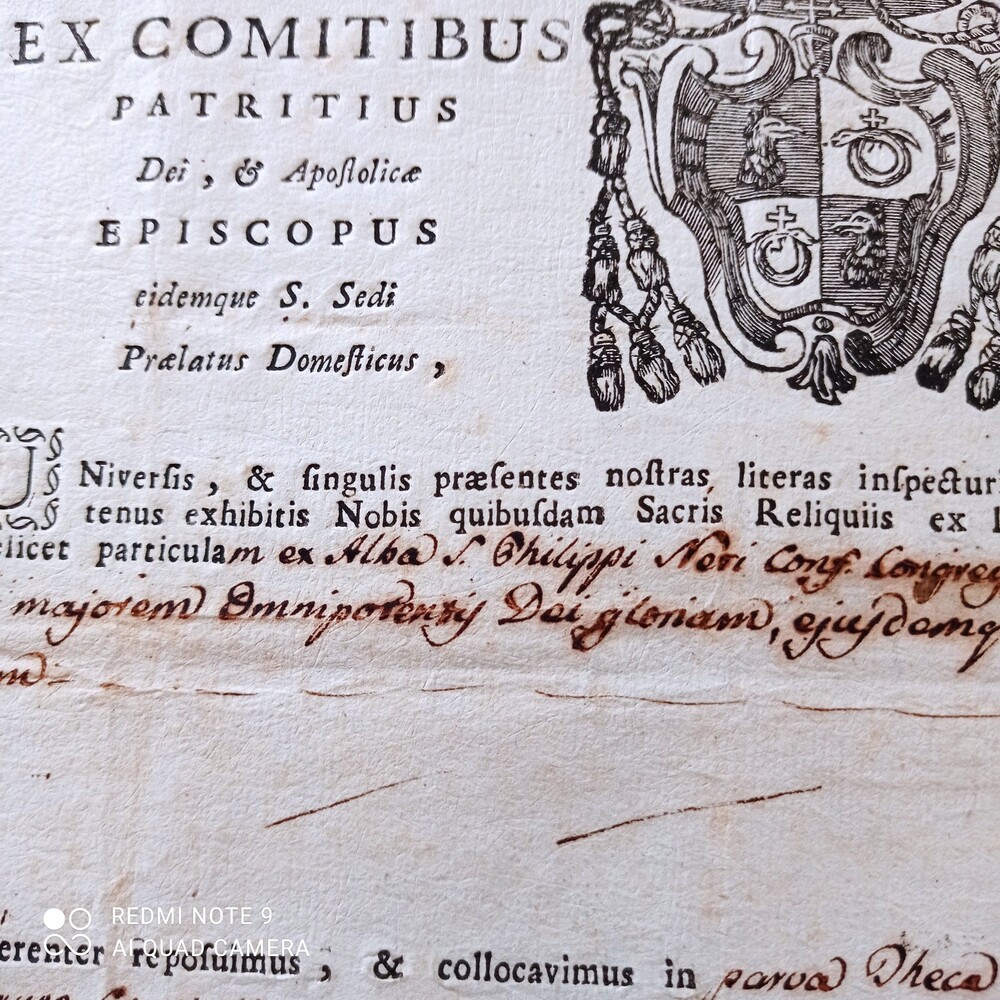 EX COMITIBUS
PATRITIUS
Dei, & Apoſtolicæ
EPISCOPUS
eidemque S. Sedi
Prælatus Domeſticus,
UNiverſis, & ſingulis præſentes noſtras literas inſpectur
tenus exhibitis Nobis quibuſdam Sacris Reliquiis ex
elicet particulam ex Alba S. Philippi Neri Conf. Congreg
majorem Omnipotentis Dei gloriam, ejusdemq
m
erenter repoſuimus, & collocavimus in parva Theca
REDMI NOTE 9
AI QUAD CAMERA